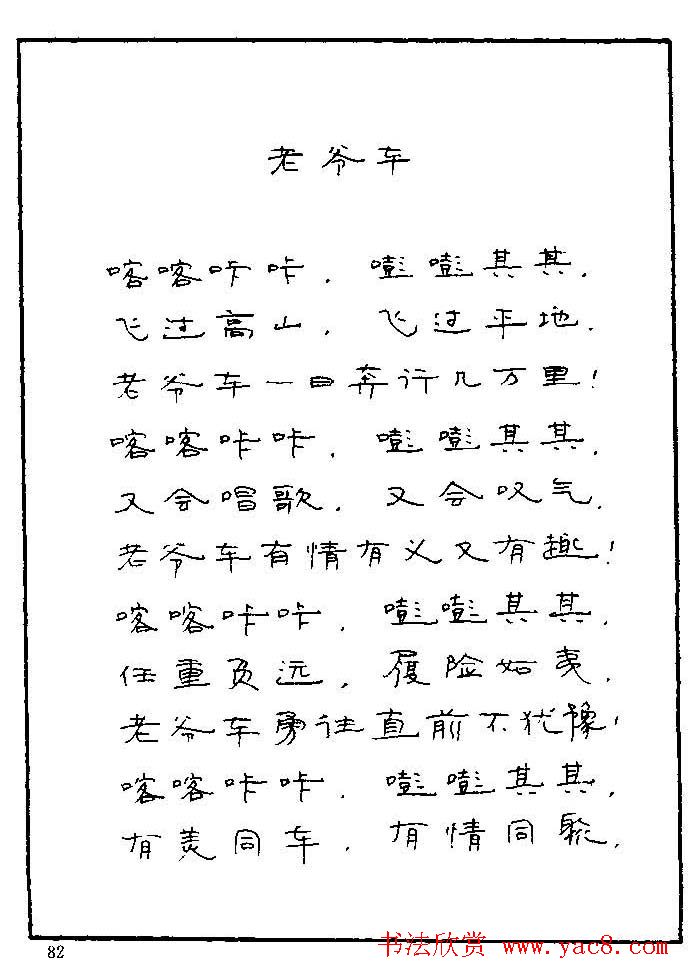 老爷车
喀喀咔咔，嘭嘭其其，
飞过高山，飞过平地，
老爷车一日奔行几万里！
喀喀咔咔，嘭嘭其其，
又会唱歌，又会叹气，
老爷车有情有义又有趣！
喀喀咔咔，嘭嘭其其，
任重负远，履险如夷，
老爷车勇往直前不犹豫！
喀喀咔咔，嘭嘭其其，
有美同车，有情同聚，
82
书法欣赏 www.yac8.com